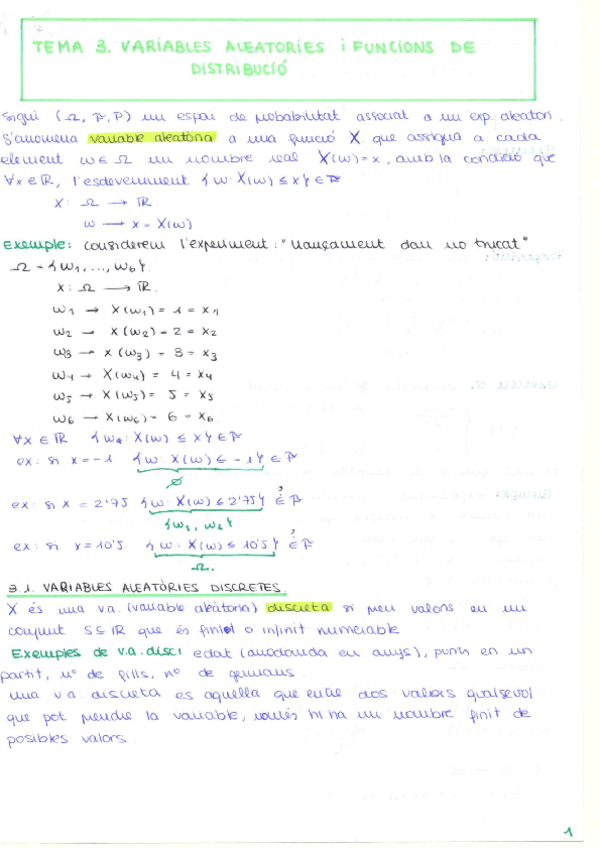 TEMA 3. VARIABLES ALEATORIES i FUNCIONS DE
DISTRIBUCIÓ
Sigui (Ω, F, P) un espai de probabilitat associat a un exp. aleatori.
S'anomena variable aleatòria a una funció X que assigna a cada
element ω ∈ Ω un nombre real X(ω) = x, amb la condició que
∀x ∈ ℝ, l'esdeveniment {ω: X(ω) ≤ x} ∈ F
X: Ω → ℝ
ω → x = X(ω)
Exemple: Considerem l'experiment: "llançament dau no trucat"
Ω = {ω1, ..., ω6}.
X: Ω → ℝ.
ω1 → X(ω1) = 1 = x1
ω2 → X(ω2) = 2 = x2
ω3 → X(ω3) = 3 = x3
ω4 → X(ω4) = 4 = x4
ω5 → X(ω5) = 5 = x5
ω6 → X(ω6) = 6 = x6
∀x ∈ ℝ {ω: X(ω) ≤ x} ∈ F
ex: si x = -1 {ω: X(ω) ≤ -1} ∈ F
∅
ex: si x = 2'75 {ω: X(ω) ≤ 2'75} ¿∈? F
{ω1, ω2}
ex: si x = 10'5 {ω: X(ω) ≤ 10'5} ¿∈? F
Ω.
3.1. VARIABLES ALEATÒRIES DISCRETES.
X és una v.a. (variable aleatòria) discreta si pren valors en un
conjunt S ⊆ ℝ que és finit o infinit numerable
Exemples de v.a. disc: edat (arrodonida en anys), punts en un
partit, nº de fills, nº de germans.
una v.a. discreta es aquella que entre dos valors qualsevol
que pot prendre la variable, només hi ha un nombre finit de
posibles valors.
1